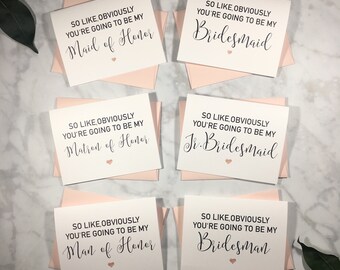 SO LIKE, OBVIOUSLY
YOU'RE GOING TO BE MY
Maid of Honor
SO LIKE, OBVIOUSLY
YOU'RE GOING TO BE MY
Bridesmaid
SO LIKE, OBVIOUSLY
YOU'RE GOING TO BE MY
Matron of Honor
SO LIKE, OBVIOUSLY
YOU'RE GOING TO BE MY
Jr. Bridesmaid
SO LIKE, OBVIOUSLY
YOU'RE GOING TO BE MY
Man of Honor
SO LIKE, OBVIOUSLY
YOU'RE GOING TO BE MY
Bridesman